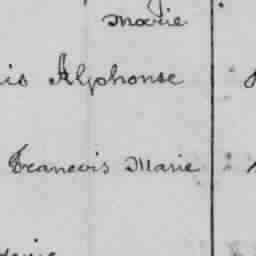 Marie
is Alphonse
Francois Marie